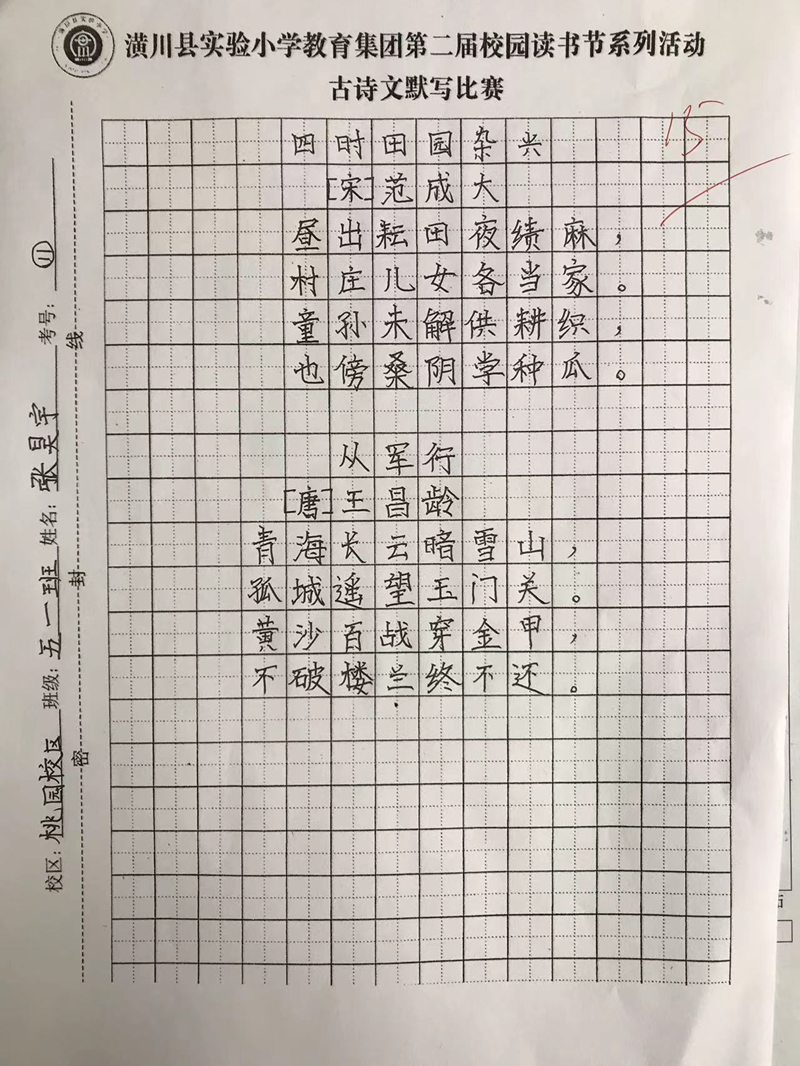 潢川县实验小学教育集团第二届校园读书节系列活动
古诗文默写比赛
15
四时田园杂兴
[宋]范成大
昼出耘田夜绩麻，
村庄儿女各当家。
童孙未解供耕织，
也傍桑阴学种瓜。
从军行
[唐]王昌龄
青海长云暗雪山，
孤城遥望玉门关。
黄沙百战穿金甲，
不破楼兰终不还。
校区：桃园校区 班级：五一班 姓名：张昊宇 考号：⑪
密 封 线